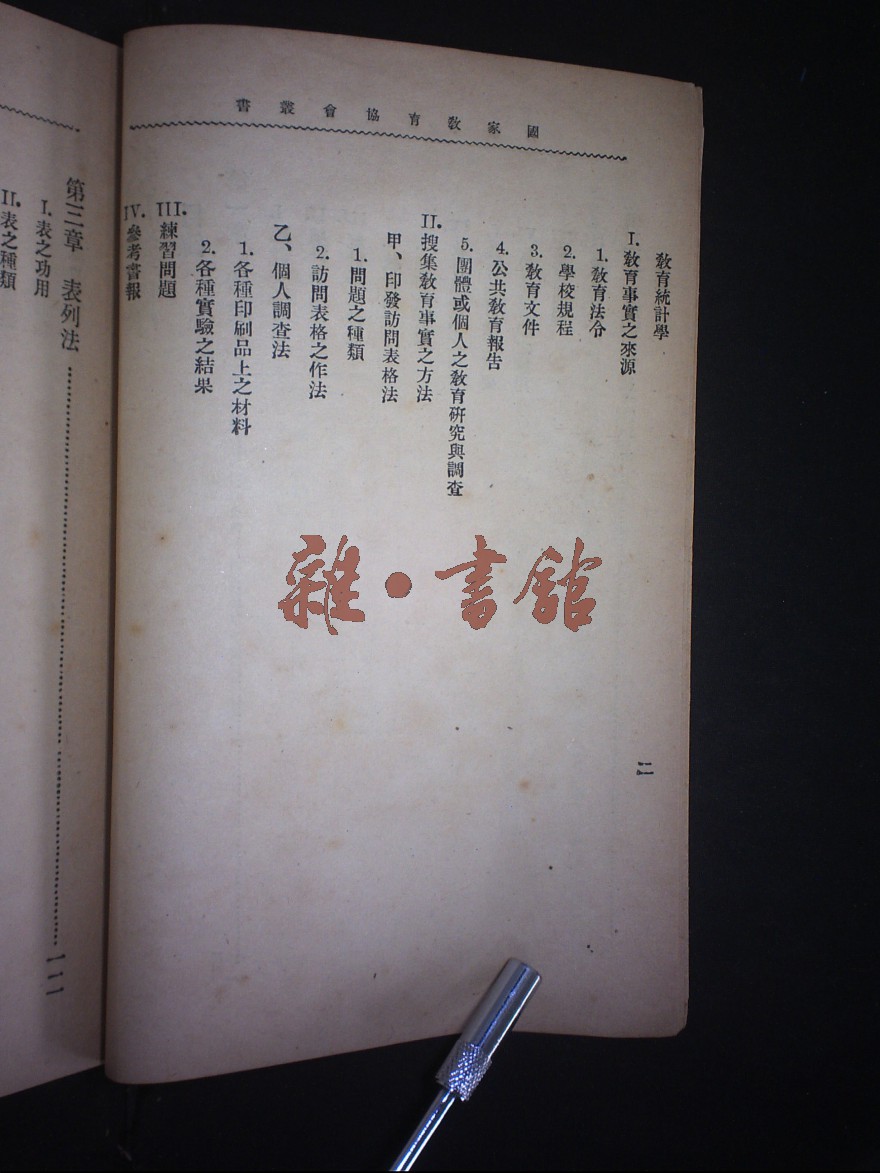 國家教育協會叢書
教育統計學
I. 教育事實之來源
1. 教育法令
2. 學校規程
3. 教育文件
4. 公共教育報告
5. 團體或個人之教育研究與調查
II. 搜集教育事實之方法
甲、印發訪問表格法
1. 問題之種類
2. 訪問表格之作法
乙、個人調查法
1. 各種印刷品上之材料
2. 各種實驗之結果
III. 練習問題
IV. 參考書報
二
第三章 表列法
I. 表之功用
II. 表之種類
雜·書館